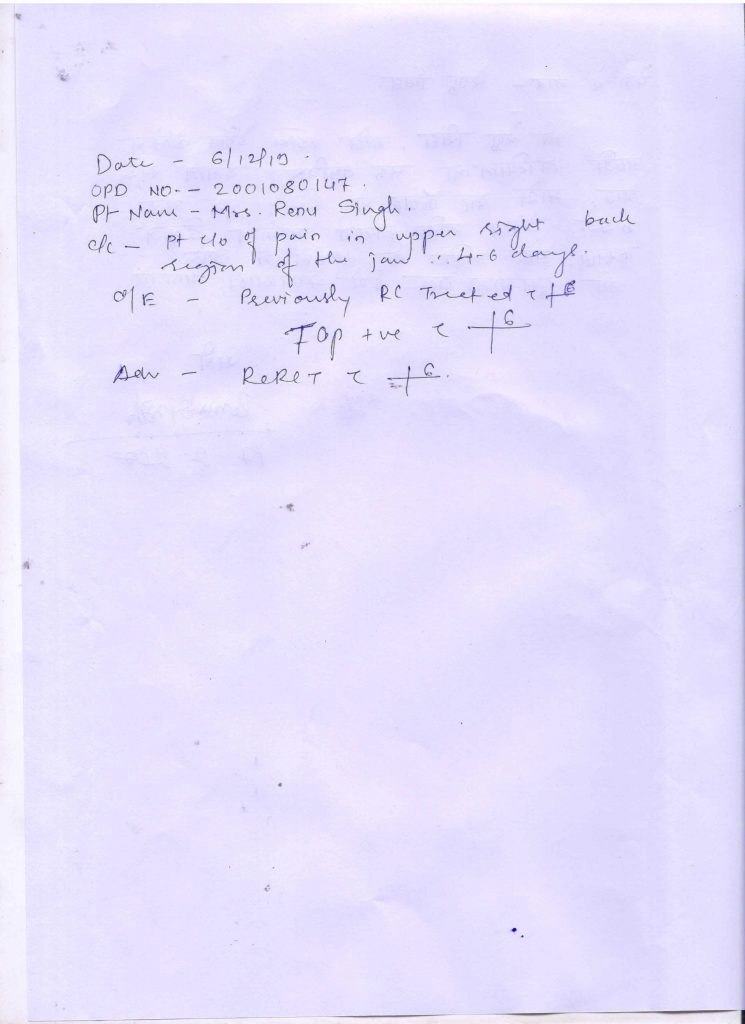 Date - 6/12/19.
OPD NO. - 20010801147.
Pt Name - Mrs. Renu Singh.
c/c - Pt c/o of pain in upper right back
region of the jaw 4-6 days.
O/E - Previously RC Treated 6
TOP +ve 6
Adv - ReRCT 6.